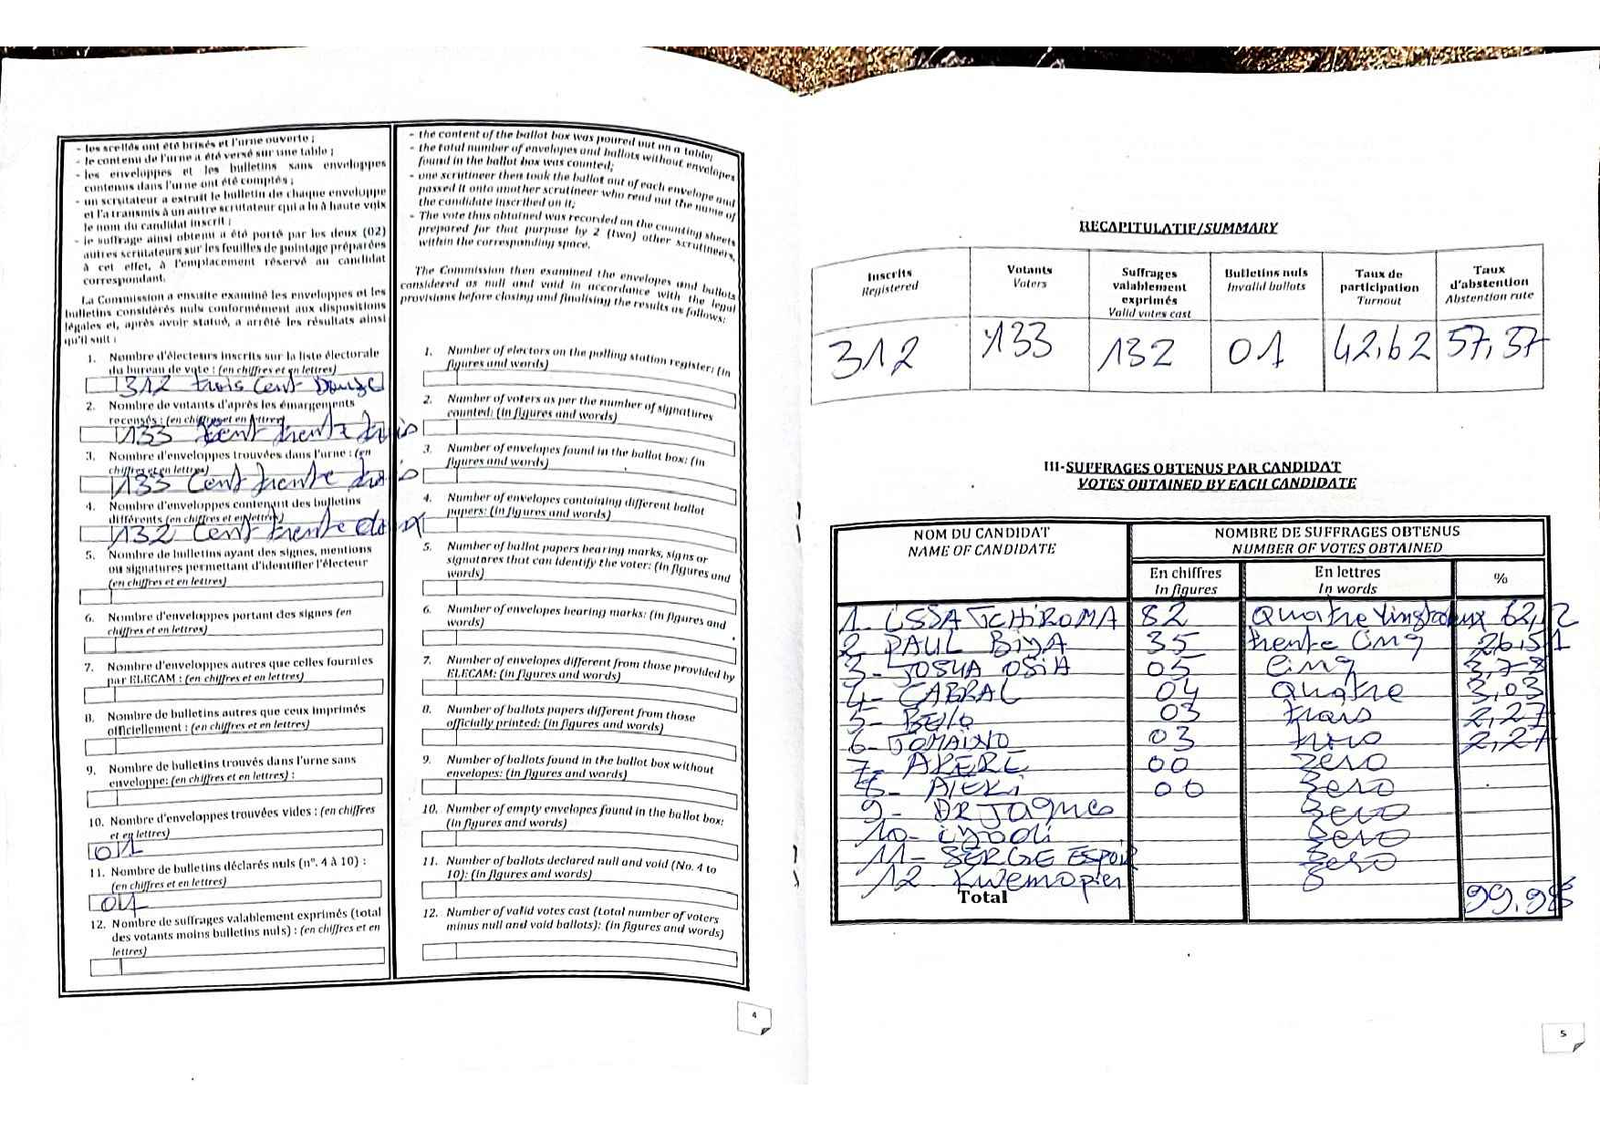 - les scellés ont été brisés et l'urne ouverte ;
- le contenu de l'urne a été versé sur une table ;
- les enveloppes et les bulletins sans enveloppes
contenus dans l'urne ont été comptés ;
- un scrutateur a extrait le bulletin de chaque enveloppe
et l'a transmis à un autre scrutateur qui a lu à haute voix
le nom du candidat inscrit ;
- le suffrage ainsi obtenu a été porté par les deux (02)
autres scrutateurs sur les feuilles de pointage préparées
à cet effet, à l'emplacement réservé au candidat
correspondant.
La Commission a ensuite examiné les enveloppes et les
bulletins considérés nuls conformément aux dispositions
légales et, après avoir statué, a arrêté les résultats ainsi
qu'il suit :
1. Nombre d'électeurs inscrits sur la liste électorale
du bureau de vote : (en chiffres et en lettres)
312 trois Cent Douze
2. Nombre de votants d'après les émargements
recensés : (en chiffres et en lettres)
133 Cent trente trois
3. Nombre d'enveloppes trouvées dans l'urne : (en
chiffres et en lettres)
133 Cent trente trois
4. Nombre d'enveloppes contenant des bulletins
différents (en chiffres et en lettres)
132 Cent trente deux
5. Nombre de bulletins ayant des signes, mentions
ou signatures permettant d'identifier l'électeur
(en chiffres et en lettres)
6. Nombre d'enveloppes portant des signes (en
chiffres et en lettres)
7. Nombre d'enveloppes autres que celles fournies
par ELECAM : (en chiffres et en lettres)
8. Nombre de bulletins autres que ceux imprimés
officiellement : (en chiffres et en lettres)
9. Nombre de bulletins trouvés dans l'urne sans
enveloppe: (en chiffres et en lettres) :
10. Nombre d'enveloppes trouvées vides : (en chiffres
et en lettres)
01
11. Nombre de bulletins déclarés nuls (n°. 4 à 10) :
(en chiffres et en lettres)
01
12. Nombre de suffrages valablement exprimés (total
des votants moins bulletins nuls) : (en chiffres et en
lettres)
- the content of the ballot box was poured out on a table;
- the total number of envelopes and ballots without envelopes
found in the ballot box was counted;
- one scrutineer then took the ballot out of each envelope and
passed it onto another scrutineer who read out the name of
the candidate inscribed on it;
- The vote thus obtained was recorded on the counting sheets
prepared for that purpose by 2 (two) other scrutineers,
within the corresponding space.
The Commission then examined the envelopes and ballots
considered as null and void in accordance with the legal
provisions before closing and finalising the results as follows:
1. Number of electors on the polling station register: (in
figures and words)
2. Number of voters as per the number of signatures
counted: (in figures and words)
3. Number of envelopes found in the ballot box: (in
figures and words)
4. Number of envelopes containing different ballot
papers: (in figures and words)
5. Number of ballot papers bearing marks, signs or
signatures that can identify the voter: (in figures and
words)
6. Number of envelopes bearing marks: (in figures and
words)
7. Number of envelopes different from those provided by
ELECAM: (in figures and words)
8. Number of ballots papers different from those
officially printed: (in figures and words)
9. Number of ballots found in the ballot box without
envelopes: (in figures and words)
10. Number of empty envelopes found in the ballot box:
(in figures and words)
11. Number of ballots declared null and void (No. 4 to
10): (in figures and words)
12. Number of valid votes cast (total number of voters
minus null and void ballots): (in figures and words)
4
RECAPITULATIF/SUMMARY
Inscrits Registered
Votants Voters
Suffrages valablement exprimés Valid votes cast
Bulletins nuls Invalid ballots
Taux de participation Turnout
Taux d'abstention Abstention rate
312 133 132 01 42,62 57,37
III-SUFFRAGES OBTENUS PAR CANDIDAT
VOTES OBTAINED BY EACH CANDIDATE
NOM DU CANDIDAT
NAME OF CANDIDATE
NOMBRE DE SUFFRAGES OBTENUS
NUMBER OF VOTES OBTAINED
En chiffres In figures
En lettres In words
%
1. ISSA TCHIROMA 82 Quatre vingt deux 62,12
2 PAUL BIYA 35 trente Cinq 26,51
3- JOSUA OSIH 05 Cinq 3,78
4- CABRAL 04 quatre 3,03
5- Bello 03 trois 2,27
6- TOMAINO 03 trois 2,27
7- 00 zero
8- ATEKI 00 zero
9- DR Jaques zero
10- zero
11- SERGE ESPOIR zero
12 Kwemo pier
Total 99,98
5